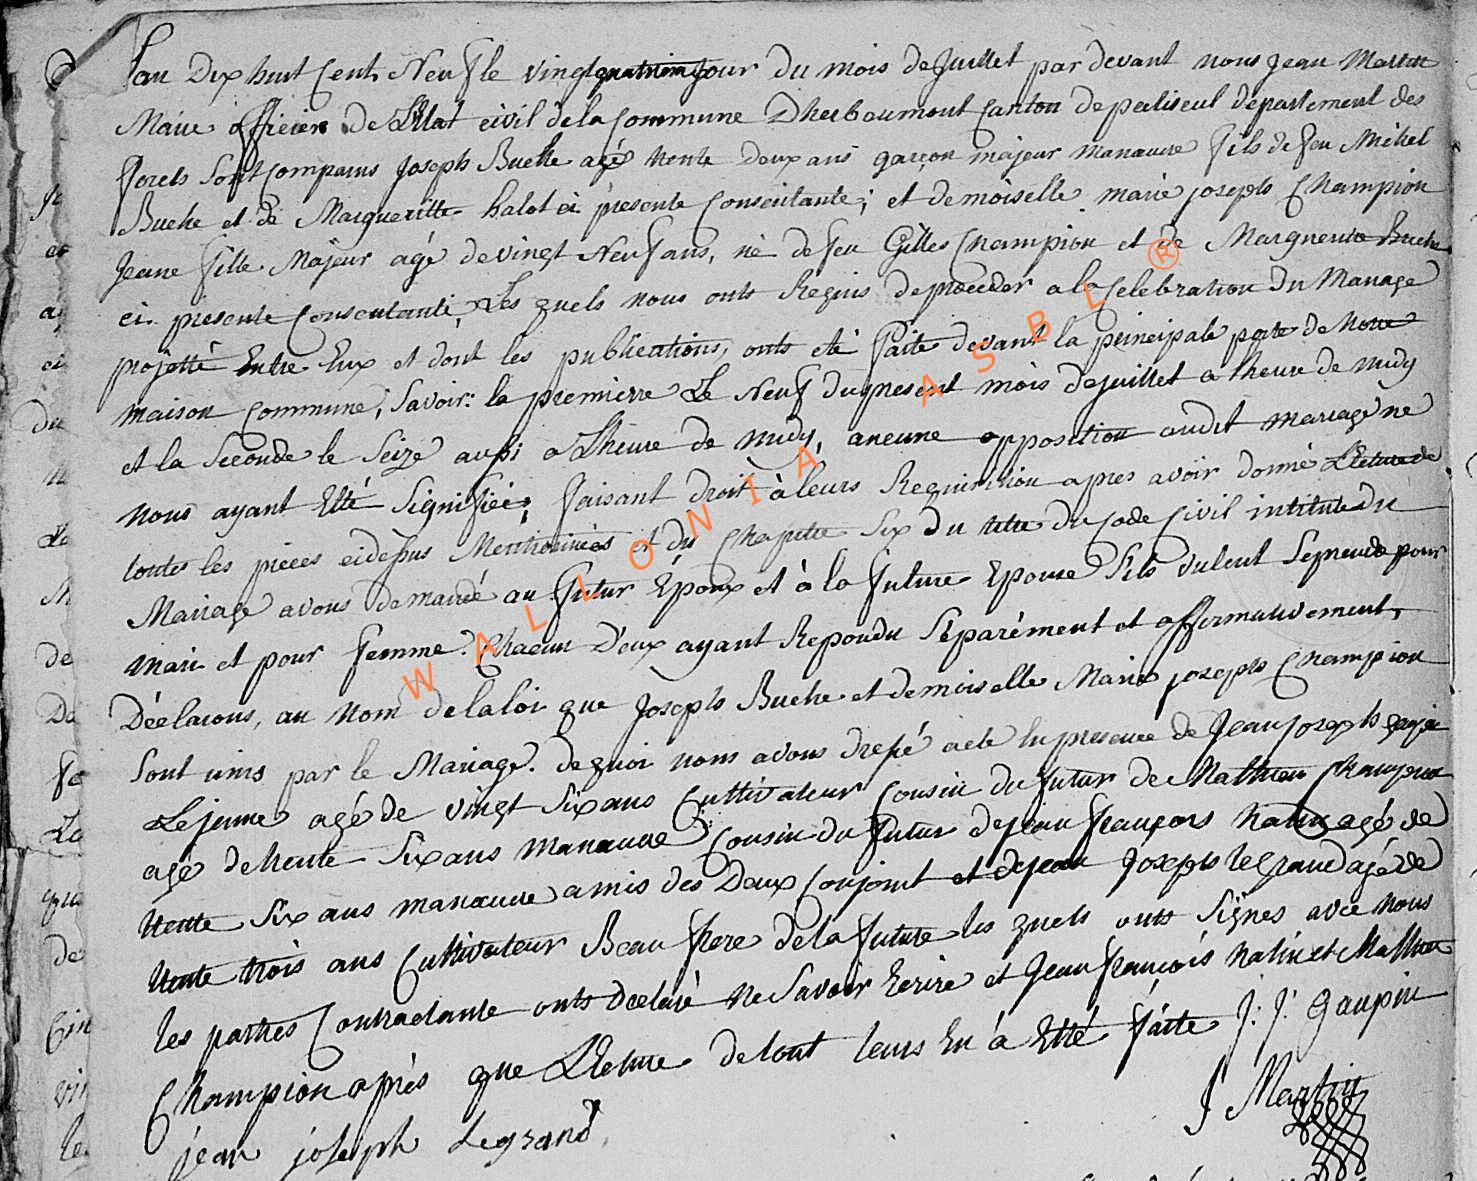 Lan Dix huit Cent Neuf le vingtquatriemjour du mois de Juillet par devant nous Jean Martin
Maire officier de L'Etat civil de la commune Dherbeumont Canton de paliseul departement des
forets sont Comparus Joseph Buche agé trente deux ans garçon majeur manœuvre fils de feu Michel
Buche et de Margueritte halot ci présente Consentante; et demoiselle marie joseph Champion
Jeune fille Majeur agé de vingt Neuf ans, né de feu Gilles Champion et de Marguerite Buche
ci presente Consentante, Les quels nous onts Requis de proceder a la Celebration Du Mariage
projetté Entre Eux et dont les publications, onts eté faite devant la principale porte de Notre
maison Commune, Savoir: la premierre Le Neuf du present mois de juillet a lheure de midy
et la Seconde le Seize aussi a Lheure de midy, aucune opposition audit mariage ne
nous ayant Etté Signifiée, faisant droit à leurs Requisition apres avoir donné Lecture de
toutes les pièces cidessus Mentionnées et du Chapitre Six Du titre Du Code Civil intitulé du
Mariage avons demandé au futur Epoux et à la future Epouse Sils vulent Seprendre pour
mari et pour femme. Chacun D'eux ayant Repondu Séparément et affirmativement,
Déclarons, au Nom de la loi que Joseph Buche et demoiselle Marie joseph Champion
Sont unis par le Mariage. de quoi nous avons dressé acte En presence de Jean Joseph gaupin
Lejeune agé de vingt Six ans Cultivateur Cousin du futur de Mathieu Champion
agé de trente Six ans manœuvre Cousin du futur de jean françois halin agé de
trente Six ans manœuvre amis des Deux Conjoint et de jean Joseph legrand agé de
trente trois ans Cultivateur Beau frere de la future les quels onts Signes avec nous
les parties Contractante onts declaré Ne Savoir Ecrire et Jean françois halin et Mathieu
Champion après que Lecture de tout leurs En á Etté faitte J: J: Gaupin
jean joseph Legrand J Martin
WALLONIA ASBL ®